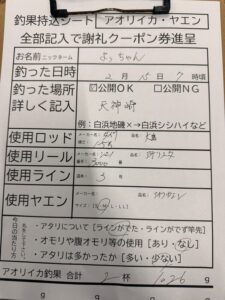 釣果持込シート アオリイカ・ヤエン
全部記入で謝礼クーポン券進呈
お名前ニックネーム よっちゃん
釣った日時 2月15日7時頃
釣った場所 ☑公開OK □公開NG
詳しく記入 天神崎
例:白浜地磯×→白浜シシハイなど
使用ロッド メーカー名: 品名:
使用リール メーカー名: 品名:
番手: 3000
使用ライン 品名: 3号
使用ヤエン メーカー名: 品名:
サイズ: [S・M・L・LL]
今日の当たり方
・アタリについて[ラインがでた・ラインがでず竿先]
・オモリや腹オモリ等の使用[あり・なし]
・アタリは多かったか[多い・少ない]
アオリイカ釣果 合計 2杯 1026g
g g g